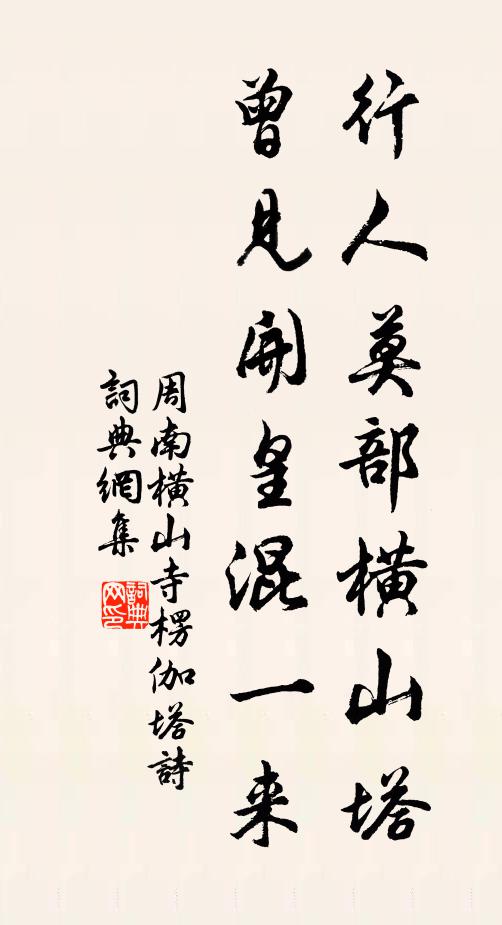 行人莫部橫山塔
曾見開皇混一来
周南橫山寺楞伽塔詩
詞典網集
詞典网印